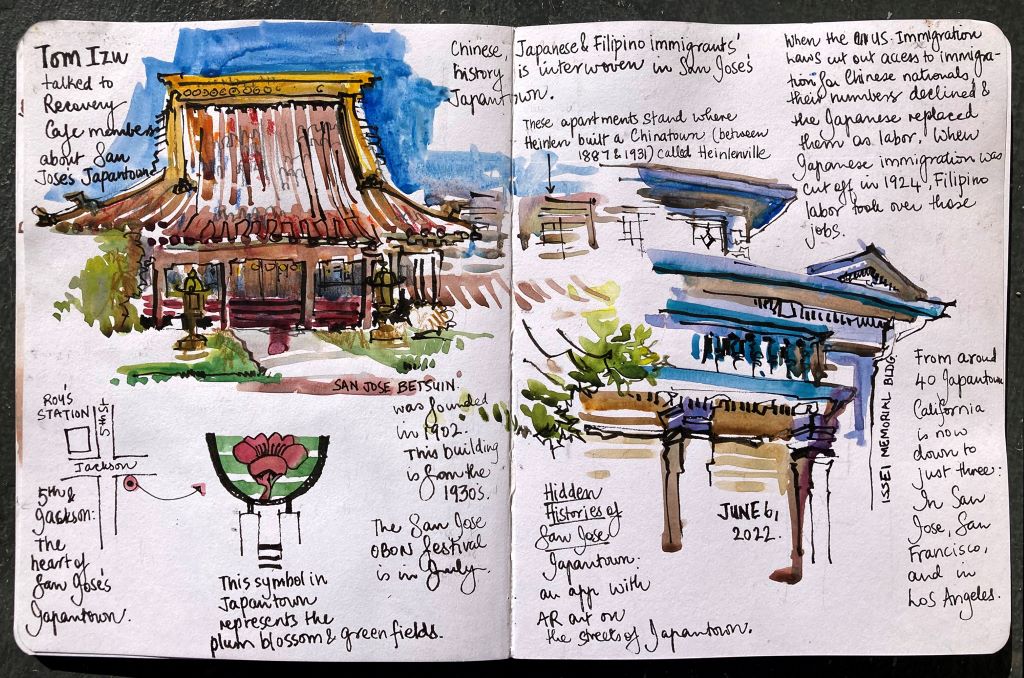 Tom Izu
talked to
Recovery
Cafe members
about San
Jose's Japantown
Chinese, Japanese & Filipino immigrants'
history is interwoven in San Jose's
Japantown.
These apartments stand where
Heinlen built a Chinatown (between
1887 & 1931) called Heinlenville
When the US Immigration
Laws cut out access to immigra-
tion for Chinese nationals,
their numbers declined &
the Japanese replaced
them as labor. When
Japanese immigration was
cut off in 1924, Filipino
labor took over those
jobs.
SAN JOSE BETSUIN.
was founded
in 1902.
This building
is from the
1930's.
The San Jose
OBON festival
is in July
ROY'S
STATION
5th St
Jackson
5th &
Jackson:
The
heart of
San Jose's
Japantown.
This symbol in
Japantown
represents the
plum blossom & green fields.
Hidden
Histories of
San Jose
Japantown:
an app with
AR art on
the streets of Japantown.
JUNE 6,
2022.
ISSEI MEMORIAL BLDG.
From around
40 Japantowns
California
is now
down to
just three:
In San
Jose, San
Francisco,
and in
Los Angeles.